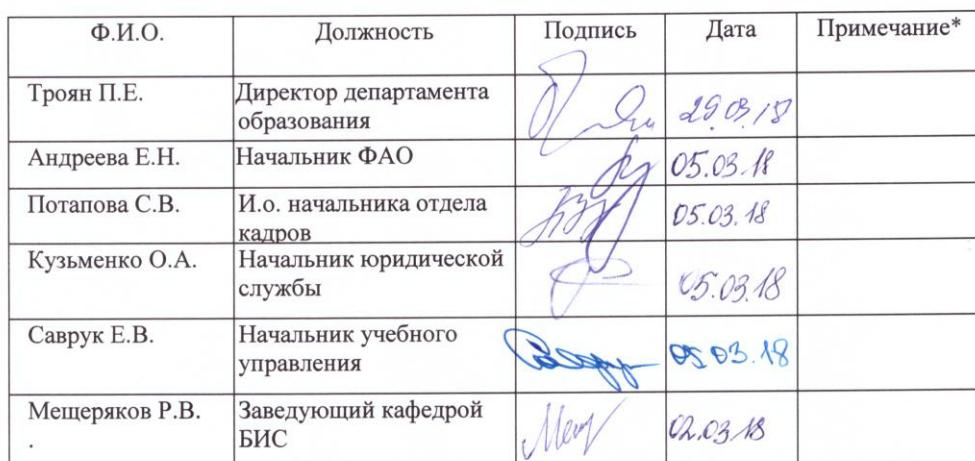 Ф.И.О. Должность Подпись Дата Примечание*
Троян П.Е. Директор департамента образования 29.03.18
Андреева Е.Н. Начальник ФАО 05.03.18
Потапова С.В. И.о. начальника отдела кадров 05.03.18
Кузьменко О.А. Начальник юридической службы 05.03.18
Саврук Е.В. Начальник учебного управления 05.03.18
Мещеряков Р.В. . Заведующий кафедрой БИС 02.03.18